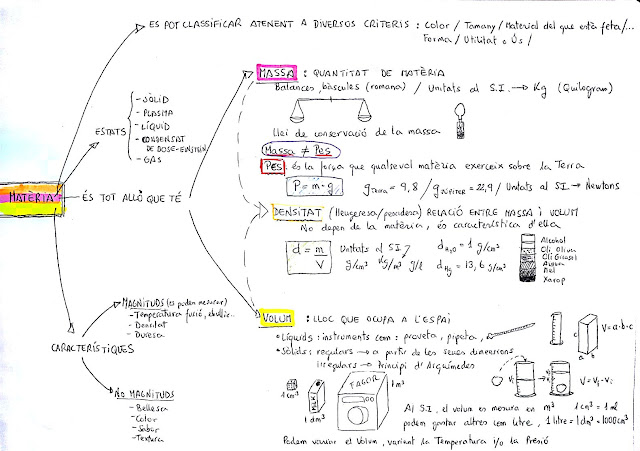 ES POT CLASSIFICAR ATENENT A DIVERSOS CRITERIS : Color / Tamany / Material del que està feta/...
Forma / Utilitat o Ús /
MATÈRIA
ÉS TOT ALLÒ QUE TÉ
ESTATS
- SÒLID
- PLASMA
- LÍQUID
- CONDENSAT
DE BOSE-EINSTEIN
- GAS
MASSA : QUANTITAT DE MATÈRIA
Balances, bàscules (romana) / Unitats al S.I. → Kg (Quilogram)
Llei de conservació de la massa
Massa ≠ Pes
PES: és la força que qualsevol matèria exerceix sobre la Terra
P = m · g
g Terra = 9,8 / g Júpiter = 22,9 / Unitats al SI → Newtons
DENSITAT (lleugeresa/pesadesa) RELACIÓ ENTRE MASSA i VOLUM
No depen de la matèria, és característica d'ella
d = m
V
Unitats al S.I.
g/cm³ Kg/m³ g/l
d H2O = 1 g/cm³
d Hg = 13,6 g/cm³
Alcohol
Oli Oliva
Oli Girasol
Aigua
Mel
Xarop
VOLUM : LLOC QUE OCUPA A L'ESPAI
• Líquids : instruments com : proveta, pipeta,
• Sòlids : regulars → a partir de les seues dimensions
irregulars → Principi d'Arquímedes
a
b
c
V = a·b·c
Vi
V = Vf - Vi
1 cm³
MILK
1 dm³
FAGOR
1 m³
Al S.I. el volum es mesura en m³ 1 cm³ = 1 ml
podem gastar altres com litre, 1 litre = 1 dm³ = 1000 cm³
Podem variar el Volum, variant la Temperatura i/o la Pressió
CARACTERÍSTIQUES
MAGNITUDS (es poden mesurar)
- Temperatura fusió, ebullic...
- Densitat
- Duresa
NO MAGNITUDS
- Bellesa
- Color
- Sabor
- Textura